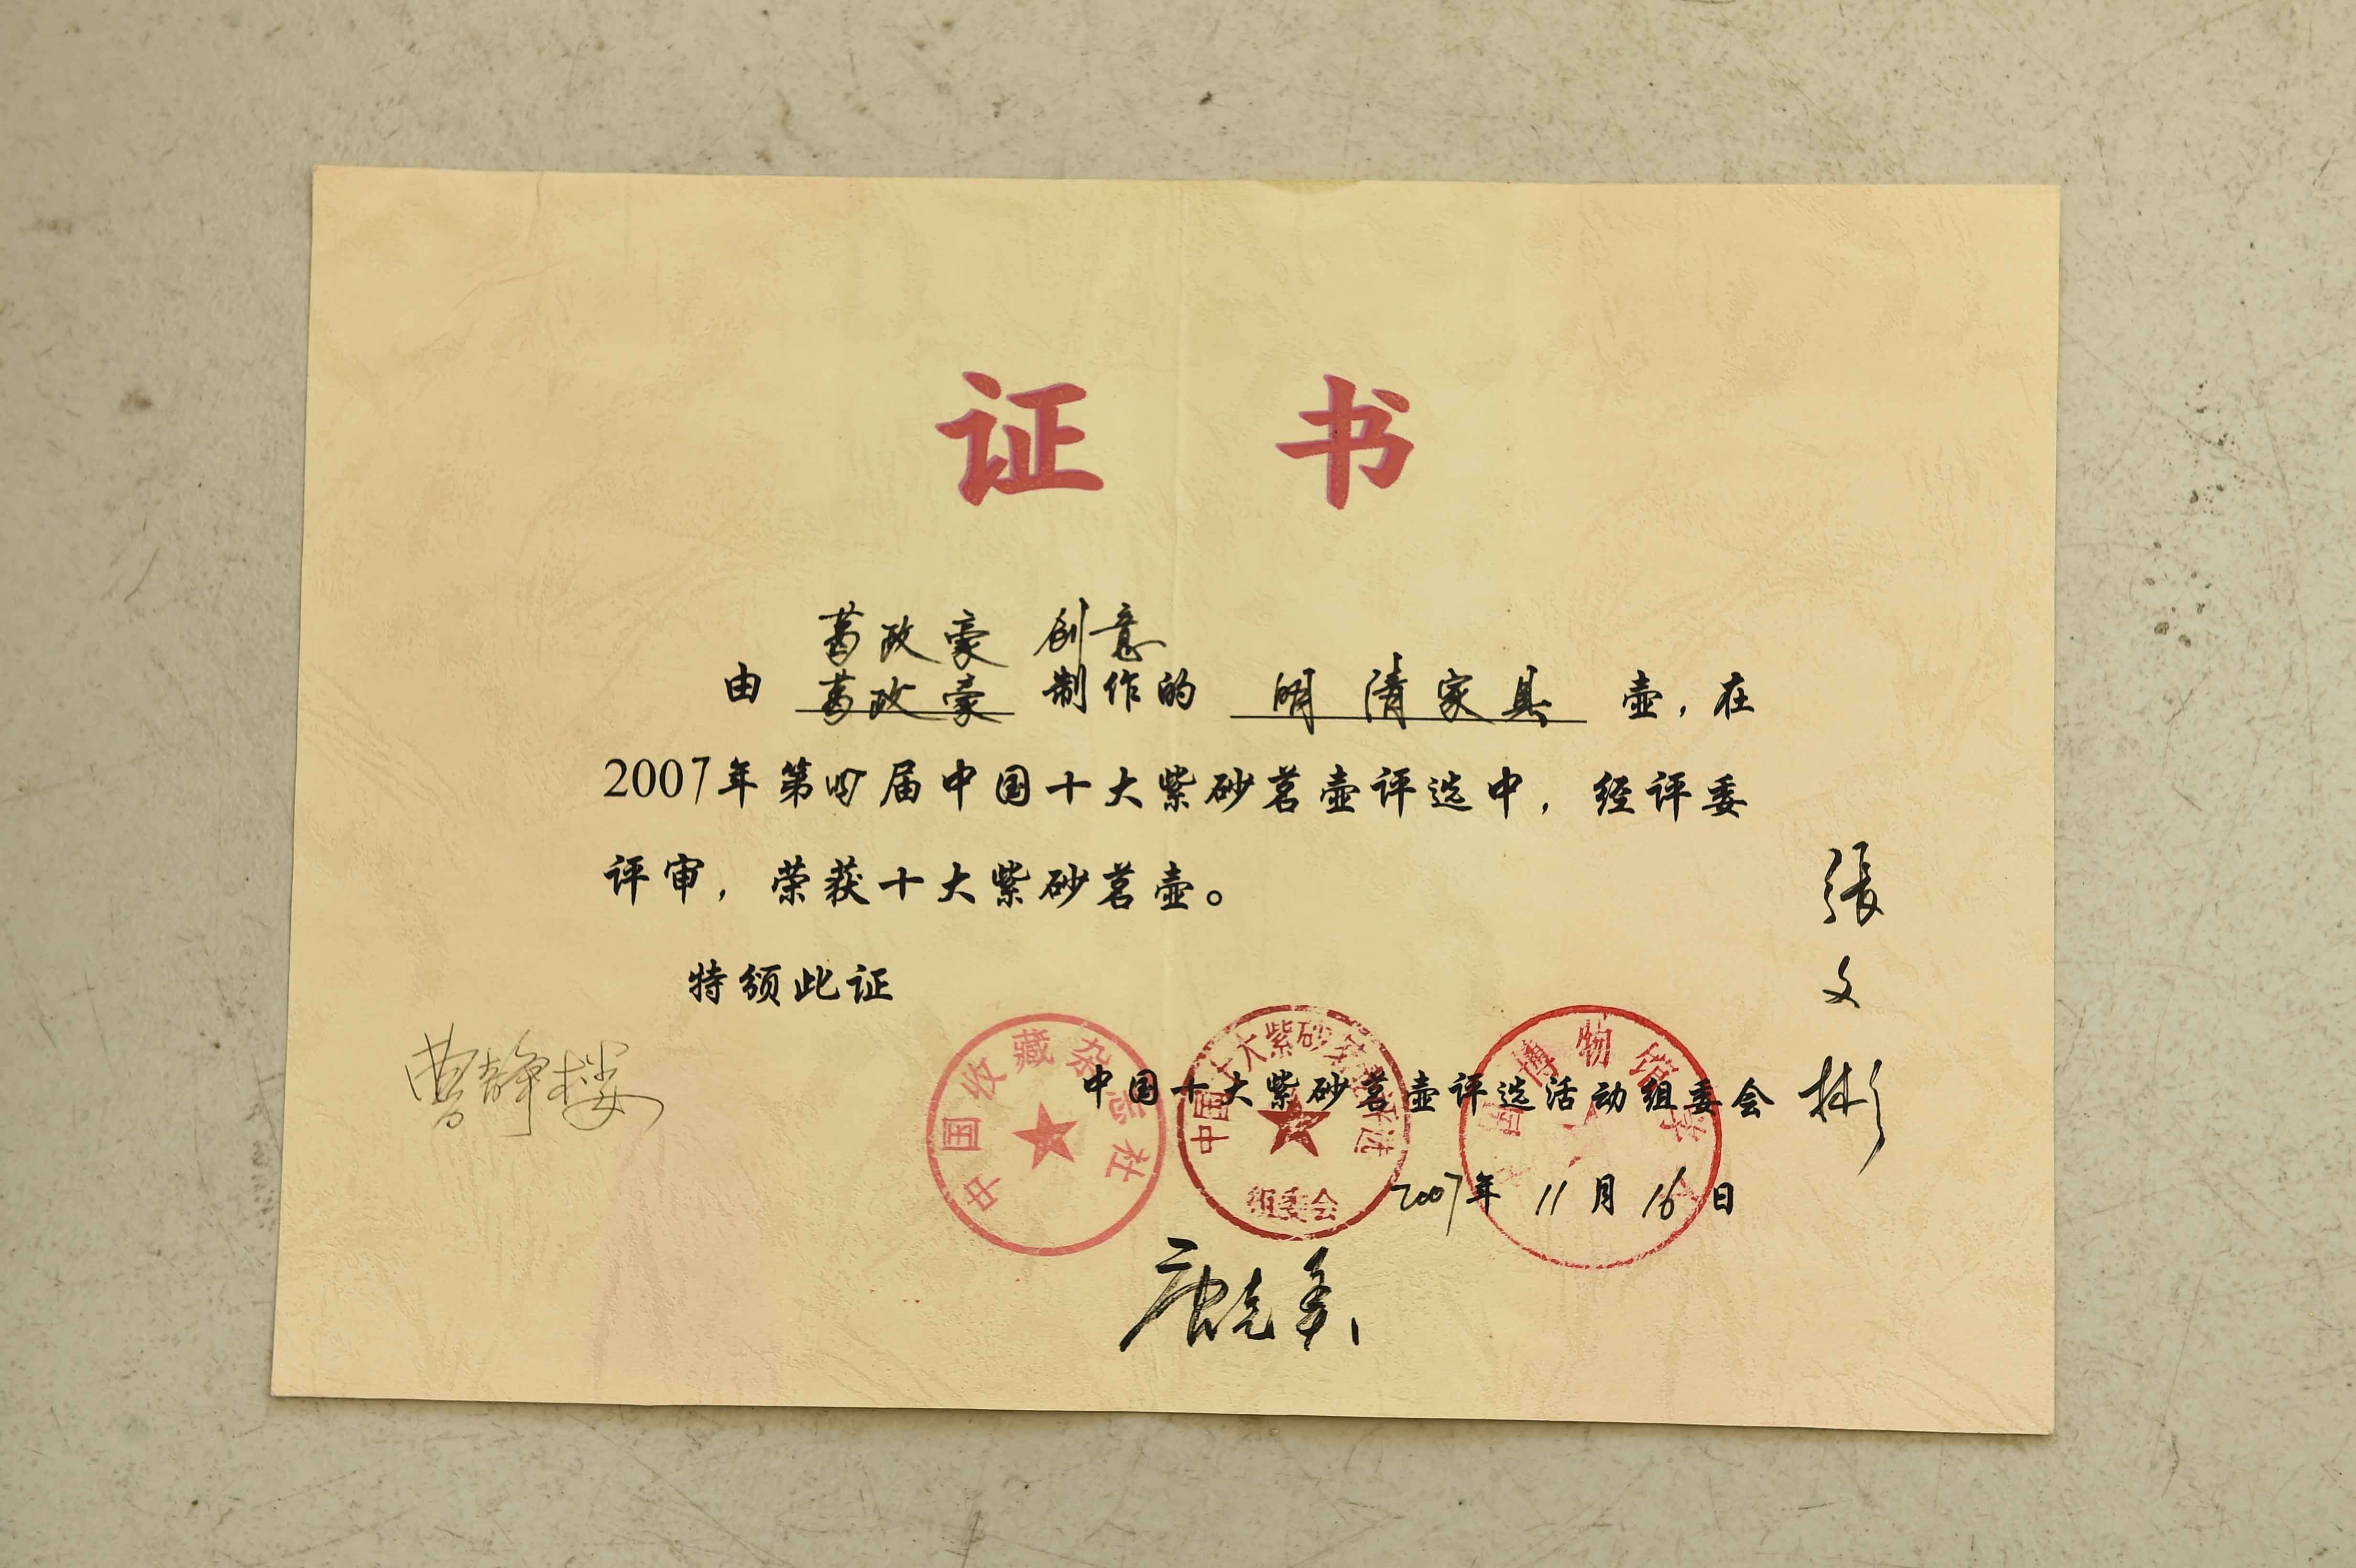 证 书
葛政豪 创意
由 葛政豪 制作的 明清家具 壶，在
2007年第四届中国十大紫砂茗壶评选中，经评委
评审，荣获十大紫砂茗壶。
特颁此证
张文彬
曹静楼
中国收藏杂志社
中国十大紫砂茗壶评选
组委会
中国十大紫砂茗壶评选活动组委会
2007年 11月 16日